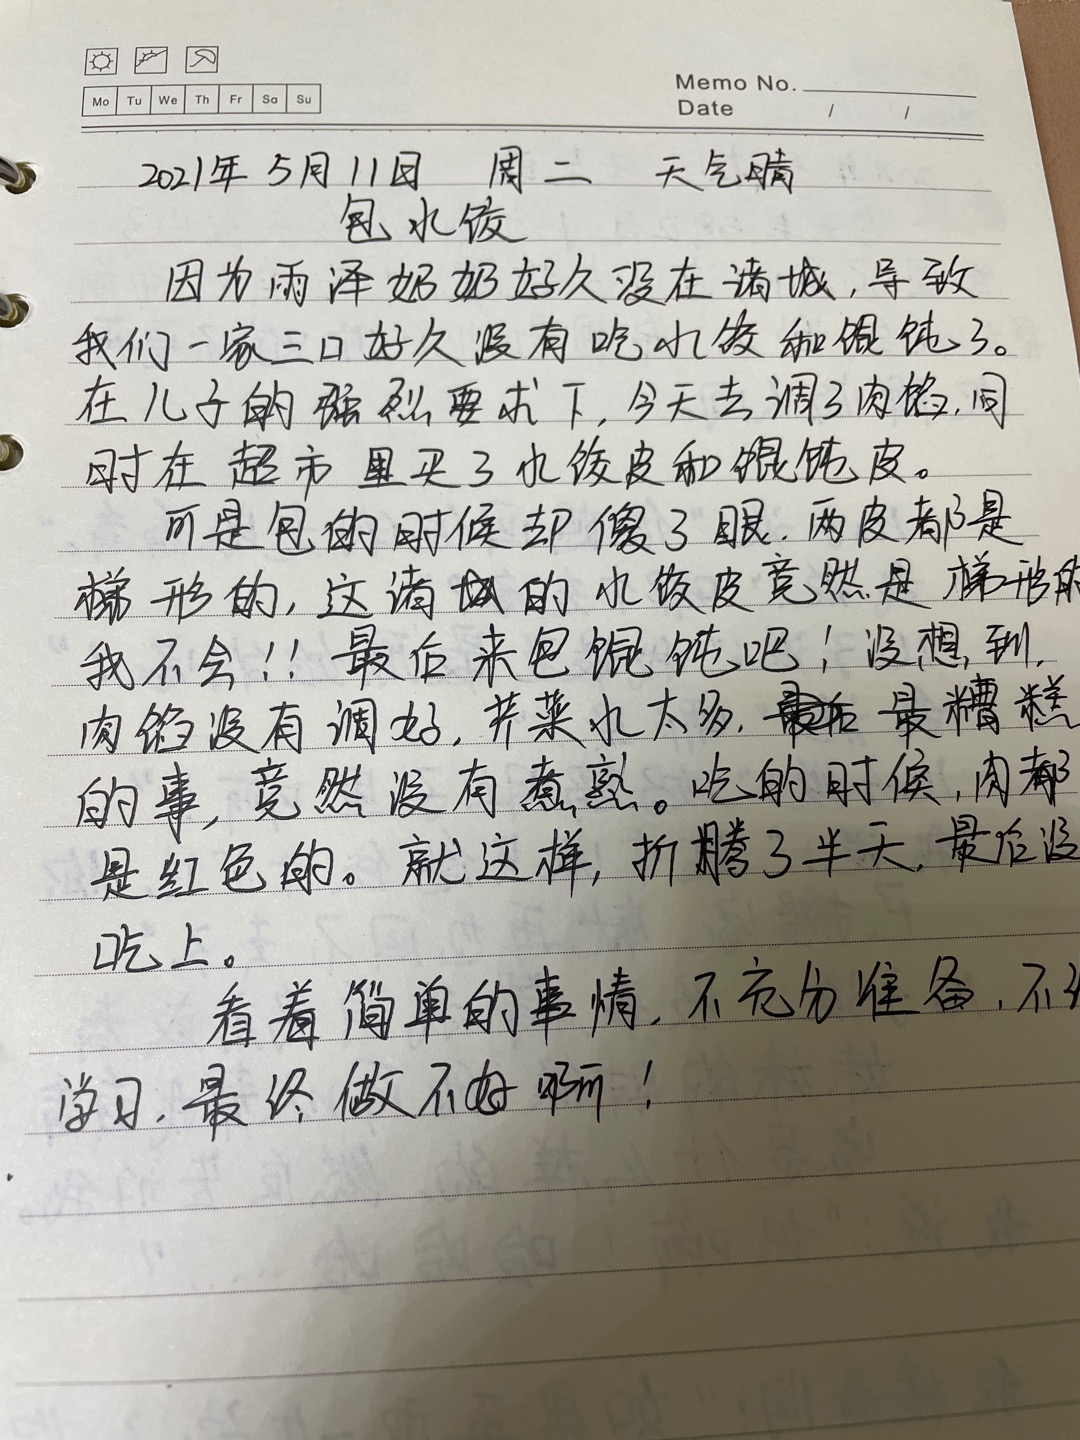 Mo Tu We Th Fr Sa Su
Memo No.
Date / /
2021年5月11日 周二 天气晴
包水饺
因为雨泽奶奶好久没在诸城,导致
我们一家三口好久没有吃水饺和馄饨了。
在儿子的强烈要求下,今天去调了肉馅,同
时在超市里买了水饺皮和馄饨皮。
可是包的时候却傻了眼.两皮都是
梯形的,这诸城的水饺皮竟然是梯形的
我不会!!最后来包馄饨吧!没想到,
肉馅没有调好,荠菜水太多,最糟糕
的事,竟然没有煮熟。吃的时候,肉都
是红色的。就这样,折腾了半天,最后没
吃上。
看着简单的事情,不充分准备,不
学习,最终做不好啊!